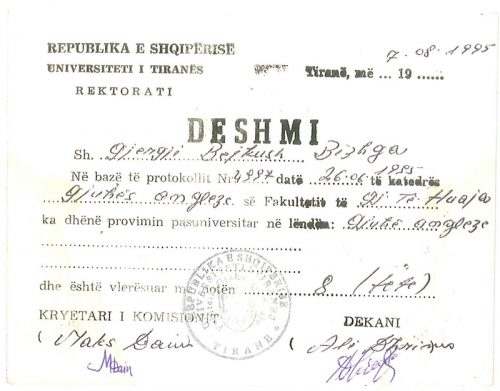 REPUBLIKA E SHQIPËRISË
UNIVERSITETI I TIRANËS
REKTORATI
7.08.1995
Tiranë, më ... 19 ......
DESHMI
Sh. Gjergji Bejkush Bizhga
Në bazë të protokollit Nr. 2997 datë 26.06.1995 të katedrës
Gjuhës angleze së Fakultetit të Gj. Të Huaja
ka dhënë provimin pasuniversitar në lëndën: Gjuhë angleze
dhe është vlerësuar me notën 8 (tetë)
REPUBLIKA E SHQIPERISE
TIRANE
KRYETARI I KOMISIONIT DEKANI
(Maks ( Ali